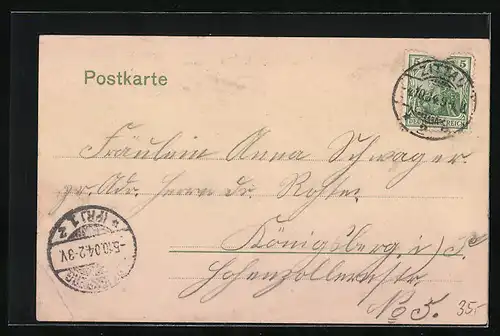 Postkarte
5 5
DEUTSCHES REICH
ZITTAU
4.10.04.
2
Fräulein Anna Schwager.
pr. Adr. Herrn Dr.
Königsberg i/P
Hohenzollernstr.
No 5.
35.-
* (PR.) 1. z
5.10.04. 2-3V.